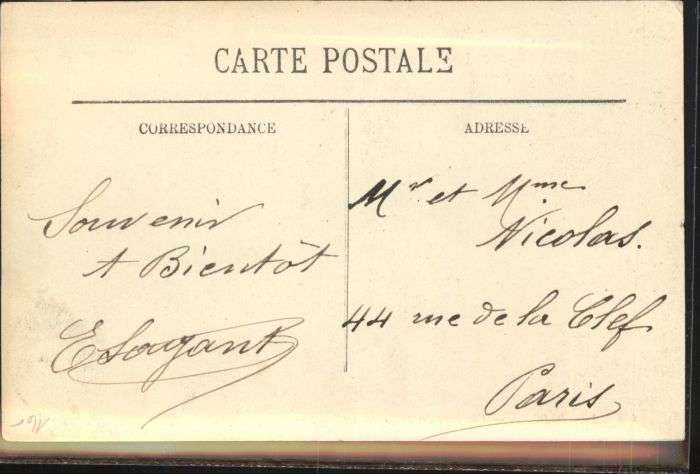 CARTE POSTALE
CORRESPONDANCE
Souvenir
A Bientôt
ADRESSE
Mr et Mme
Nicolas.
44 rue de la Clef
Paris